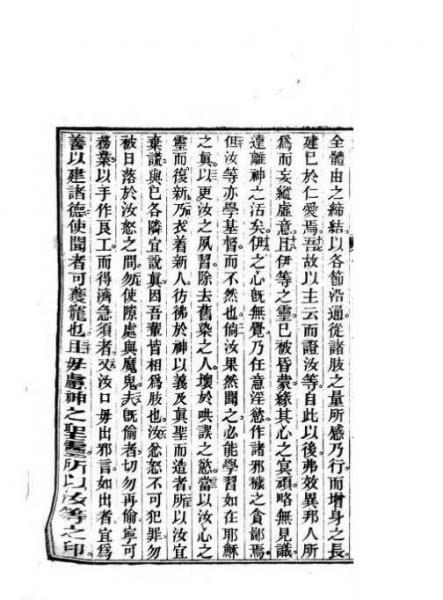 全體由之締結以各節浩通從諸肢之量所感乃行而增身之長
建已於仁愛焉吾故以主云而證汝等自此以後弗效異邦人所
為而妄縱虛意且伊等之靈已被昏蒙緣其心之冥頑略無見識
遠離神之活矣伊之心既無覺乃任意淫慾作諸邪穢之貪鄙焉
但汝等亦學基督而不然也倘汝果然聞之必能學習如在耶穌
之眞以更汝之夙習除去舊染之人壞於哄誤之慾當以汝心之
靈而復新乃衣着新人彷彿於神以義及眞聖而造者所以汝宜
棄謊與已各隣宜說眞因吾輩皆相爲肢也汝忿怒不可犯罪勿
被日落於汝怒之間勿使隙處與魔鬼夫既偷者切勿再偷寧可
務業以手作良工而得濟急須者汝口毋出邪言如出者宜爲
善以建諸德使聞者可獲寵也且毋慼神之聖靈所以汝等之印